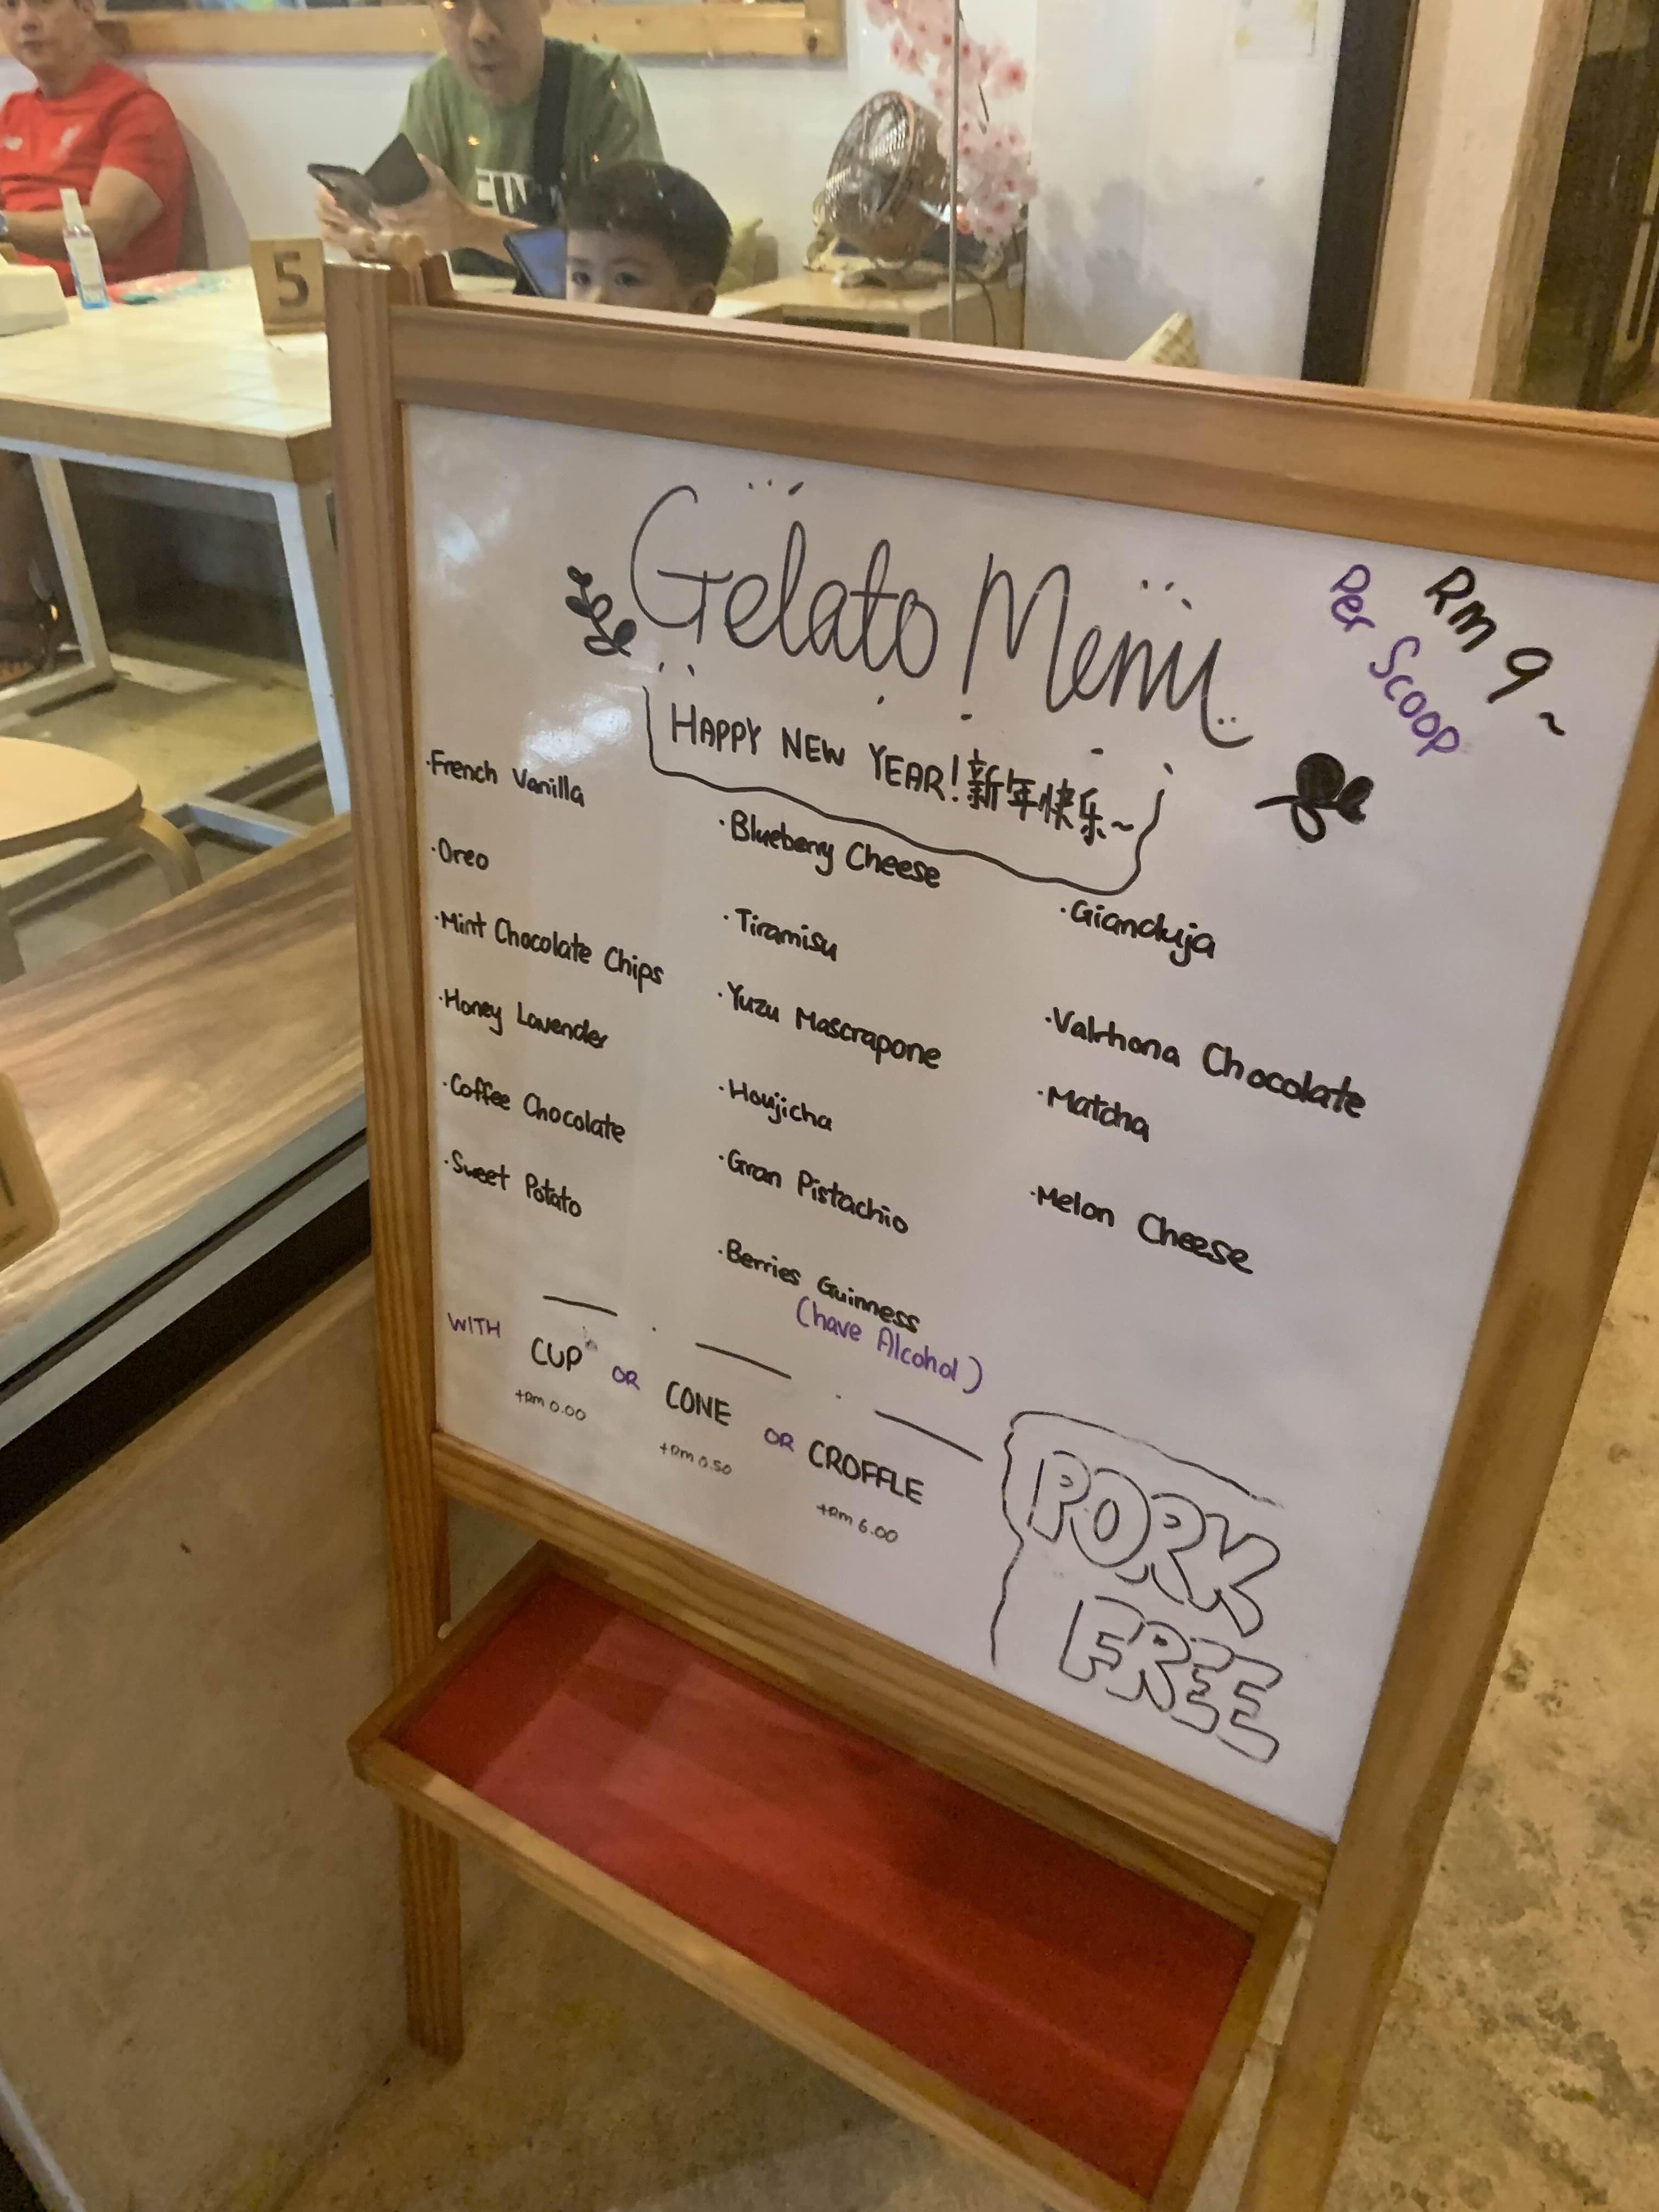 5
Gelato Menu
Rm 9~
Per Scoop
HAPPY NEW YEAR! 新年快乐~
·French Vanilla
·Oreo
·Mint Chocolate Chips
·Honey Lavender
·Coffee Chocolate
·Sweet Potato
·Blueberry Cheese
·Tiramisu
·Yuzu Mascrapone
·Houjicha
·Gran Pistachio
·Berries Guinness
(have Alcohol)
·Gianduja
·Valrhona Chocolate
·Matcha
·Melon Cheese
WITH CUP OR CONE OR CROFFLE
+Rm 0.00 +Rm 0.50 +Rm 6.00
PORK
FREE